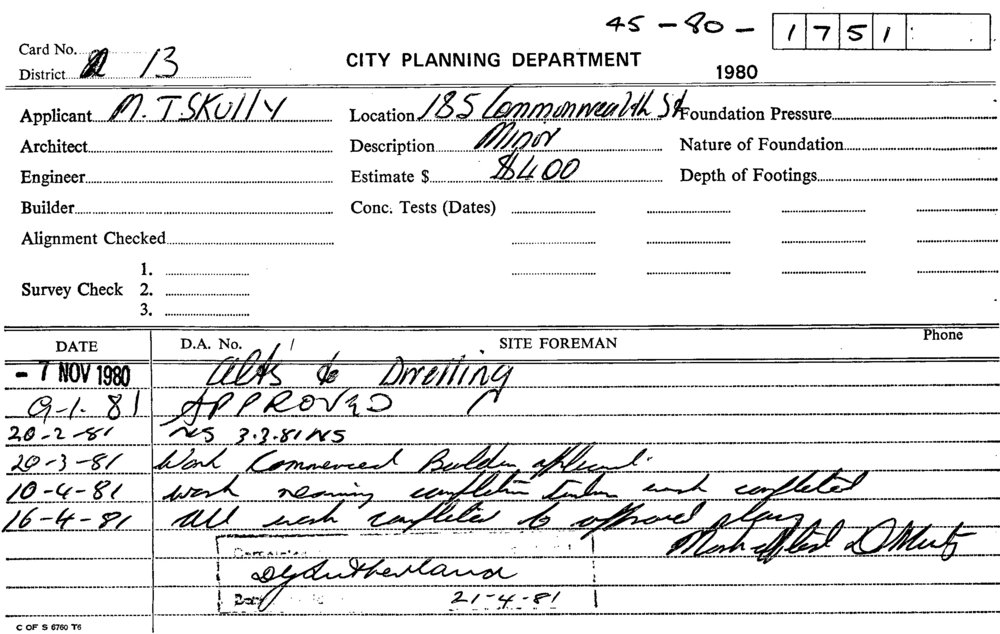 45-80- 1751
Card No.
District 13
CITY PLANNING DEPARTMENT
1980
Applicant M. T. SKULLY
Location 185 Commonwealth St
Foundation Pressure
Architect
Description Minor
Nature of Foundation
Engineer
Estimate $ $400
Depth of Footings
Builder
Conc. Tests (Dates)
Alignment Checked
Survey Check
1.
2.
3.
DATE
D.A. No. /
SITE FOREMAN
Phone
- 7 NOV 1980 Alts to Dwelling
9-1-81 APPROVED
20-2-81 NS 3.3.81 NS
20-3-81 Work Commenced Builder applicant.
10-4-81 work nearing completion work completed
16-4-81 All work completed to approved plans
DJ Sutherland
21-4-81
C OF S 6760 T6